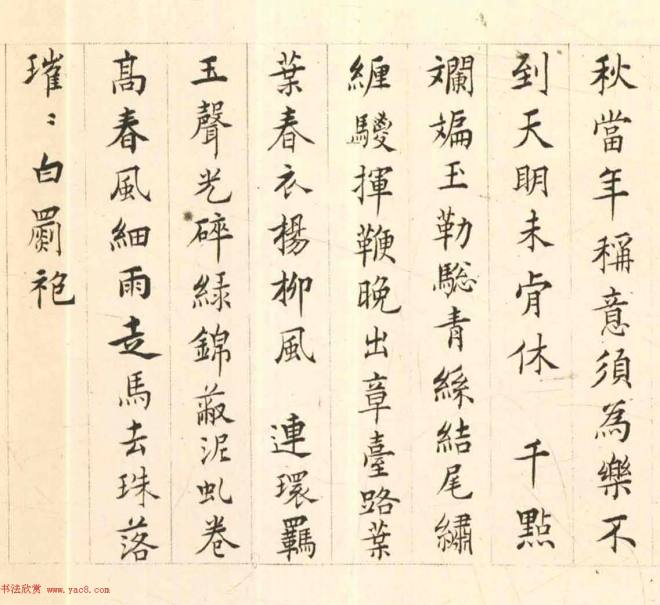 秋當年稱意須為樂不
到天明未肯休　千點
斕斒玉勒驄青絲結尾繡
纏騣揮鞭晚出章臺路葉
葉春衣楊柳風　連環羈
玉聲光碎綠錦蔽泥虬卷
高春風細雨走馬去珠落
璀〻白罽袍
书法欣赏 www.yac8.com